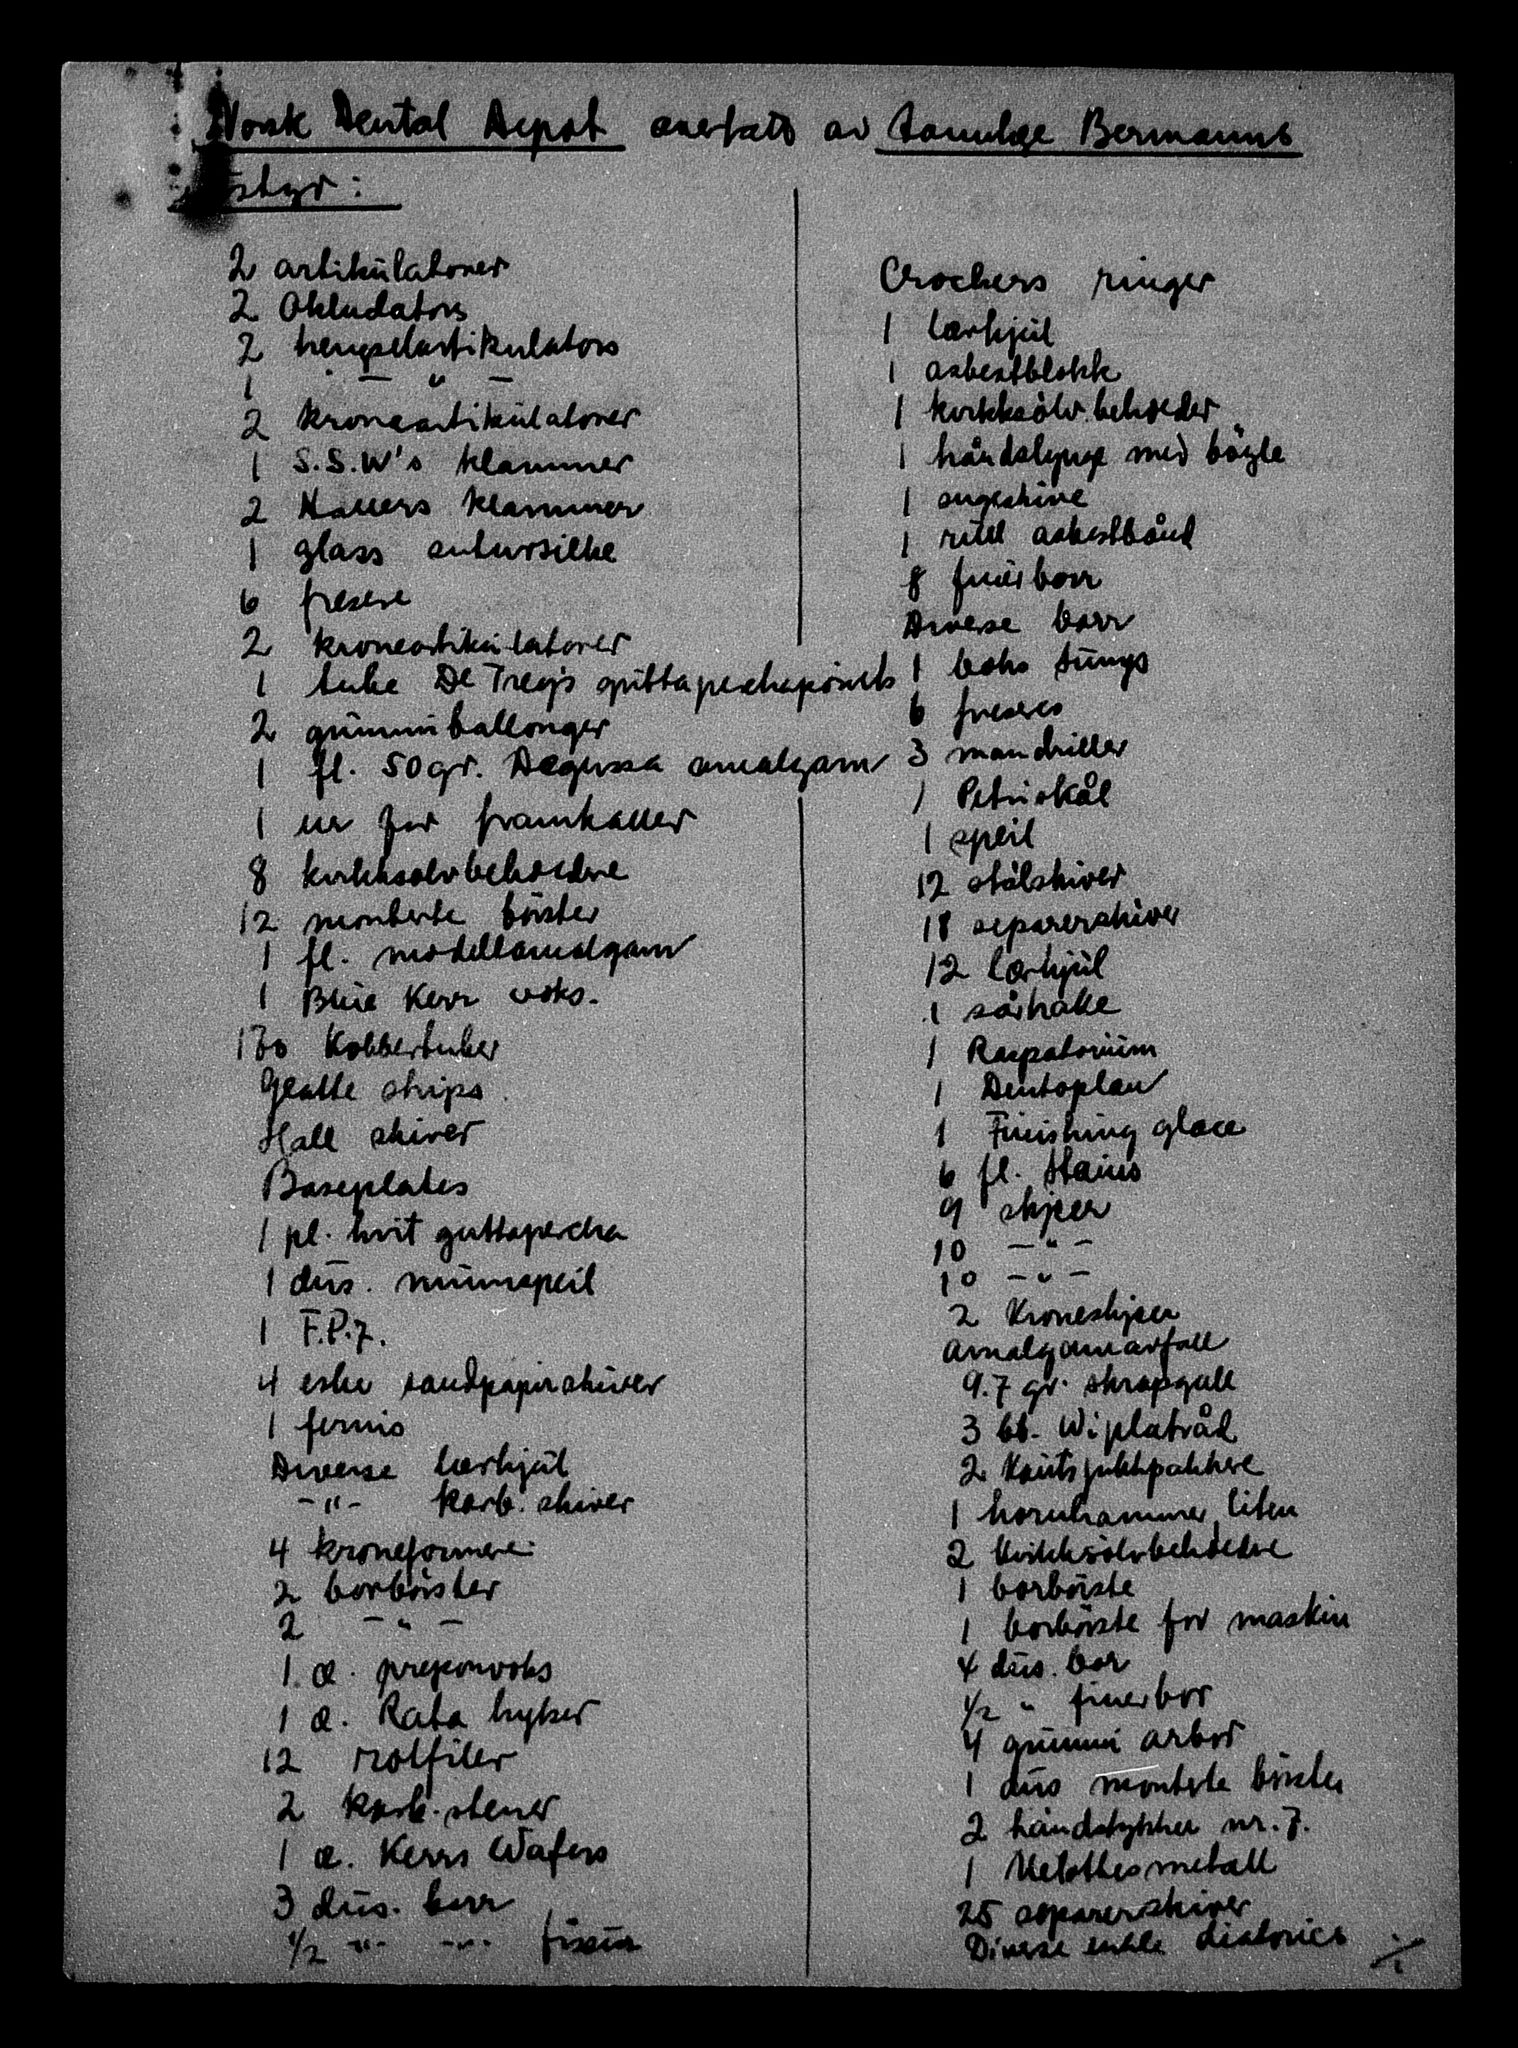 Norsk Dental Depot overtatt av tannlæge Bermanns
styr:
2 artikülatorer
2 Okludators
2 hengselartikulators
1 - " -
2 kroneartikülatorer
1 S.S.W's klammer
2 Hallers klammer
1 glass sutursilke
6 fresere
2 kroneartikülatorer
1 tube De Trey's guttaperchapoints
2 gümmiballonger
1 fl. 50 gr. Degussa amalgam
1 ur for framkaller
8 kvikksølvbeholdere
12 monterte börster
1 fl. modellamalgam
1 Blüe Kerr voks.
130 Kobbertuber
Glatte strips
Hall skiver
Baseplates
1 pl. hvit guttapercha
1 düs. münnspeil
1 F.P.7.
4 eske sandpapirskiver
1 fernis
Diverse lærhjül
-"- karb. skiver
4 kroneformere
2 borbörster
2 - " -
1 æ. preparvoks
1 æ. Rata hylser
12 rotfiler
2 karb. stener
1 æ. Kerrs Wafers
3 düs. borr
1/2 -"- -"- fissür
Crockers ringer
1 lærhjül
1 asbestblokk
1 kvikksölv.beholder
1 håndslynge med bögle
1 sugeskive
1 rüll asbestbånd
8 finérborr
Diverse borr
1 boks tungs
6 freseres
3 mandriller
1 Petriskål
1 speil
12 stålskiver
18 separerskiver
12 lærhjül
1 sårhake
1 Raspatorium
1 Dentoplan
1 Finishing glace
6 fl. Stains
9 skjeer
10 - " -
10 - " -
2 Kroneskjeer
Amalgamavfall
9.7 gr. skrapgull
3 bt. Wiplatråd
2 Kautsjukkpakkere
1 hornhammer, liten
2 Kvikksölvbeholdere
1 borbörste
1 borbörste for maskin
4 düs. bor
1/2 " finerbor
4 gümmi arbor
1 düs monterte börster
2 håndstykker nr. 7.
1 Melottes metall
25 separerskiver
Diverse enkle diatorics